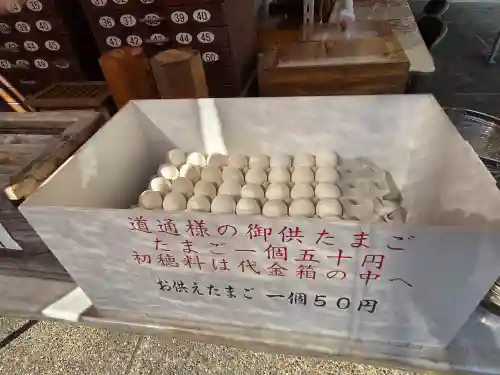 39
40
42
43
44
45
49
50
道通様の御供たまご
たまご一個五十円
初穂料は代金箱の中へ
お供えたまご 一個50円